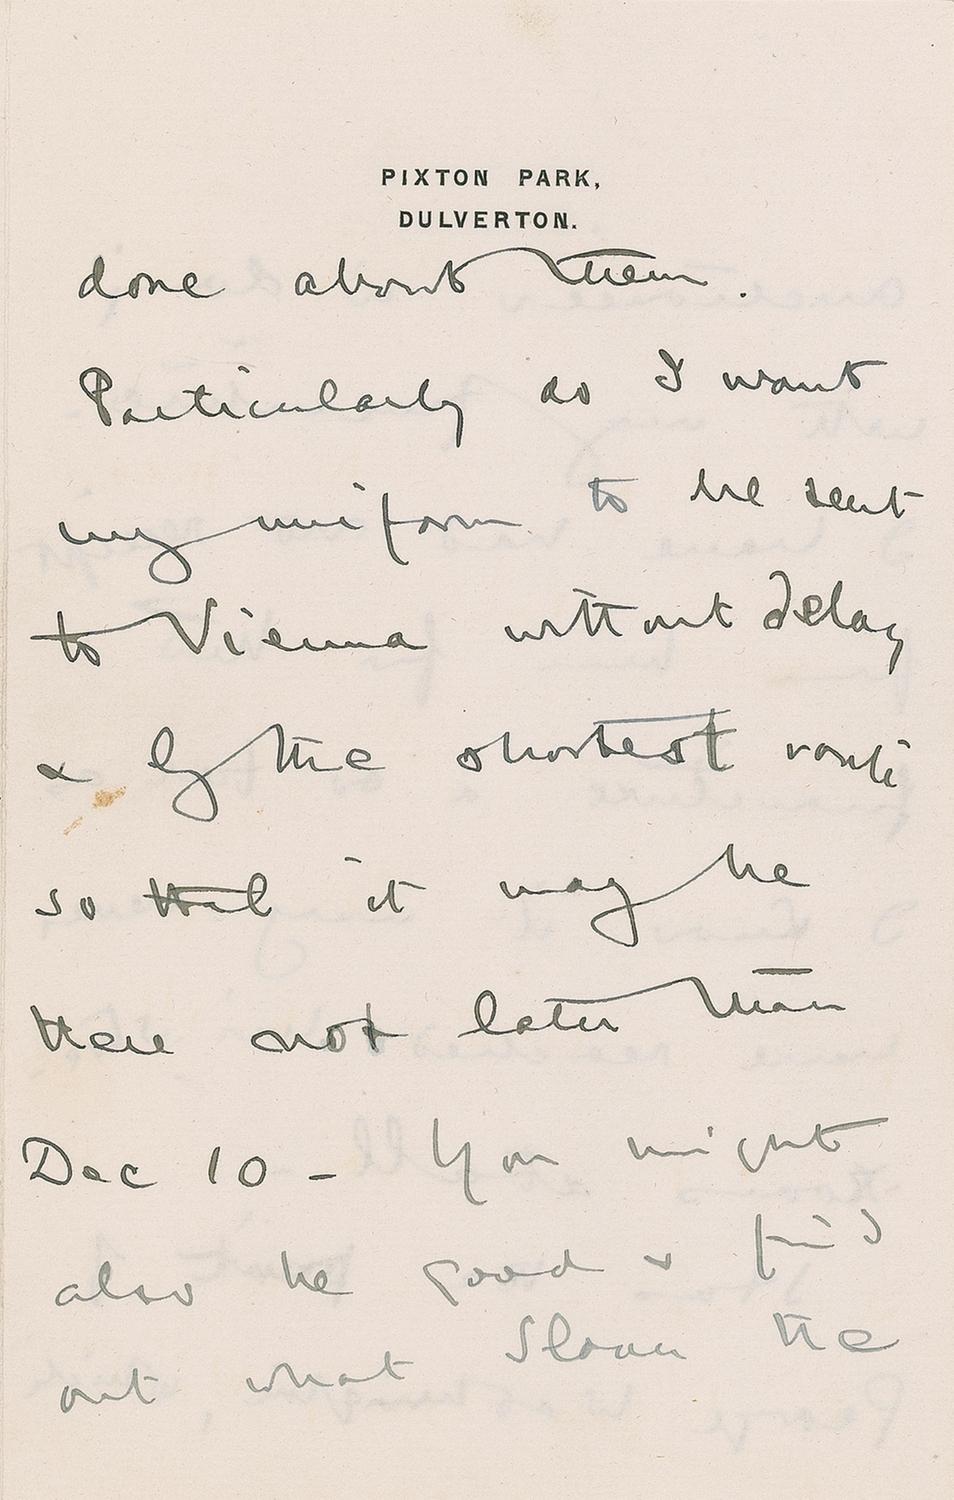 PIXTON PARK,
DULVERTON.
done about them.
Particularly do I want
my uniform to be sent
to Vienna without delay
& by the shortest route
so that it may be
there not later than
Dec 10 - You might
also be good & find
out what Sloan the